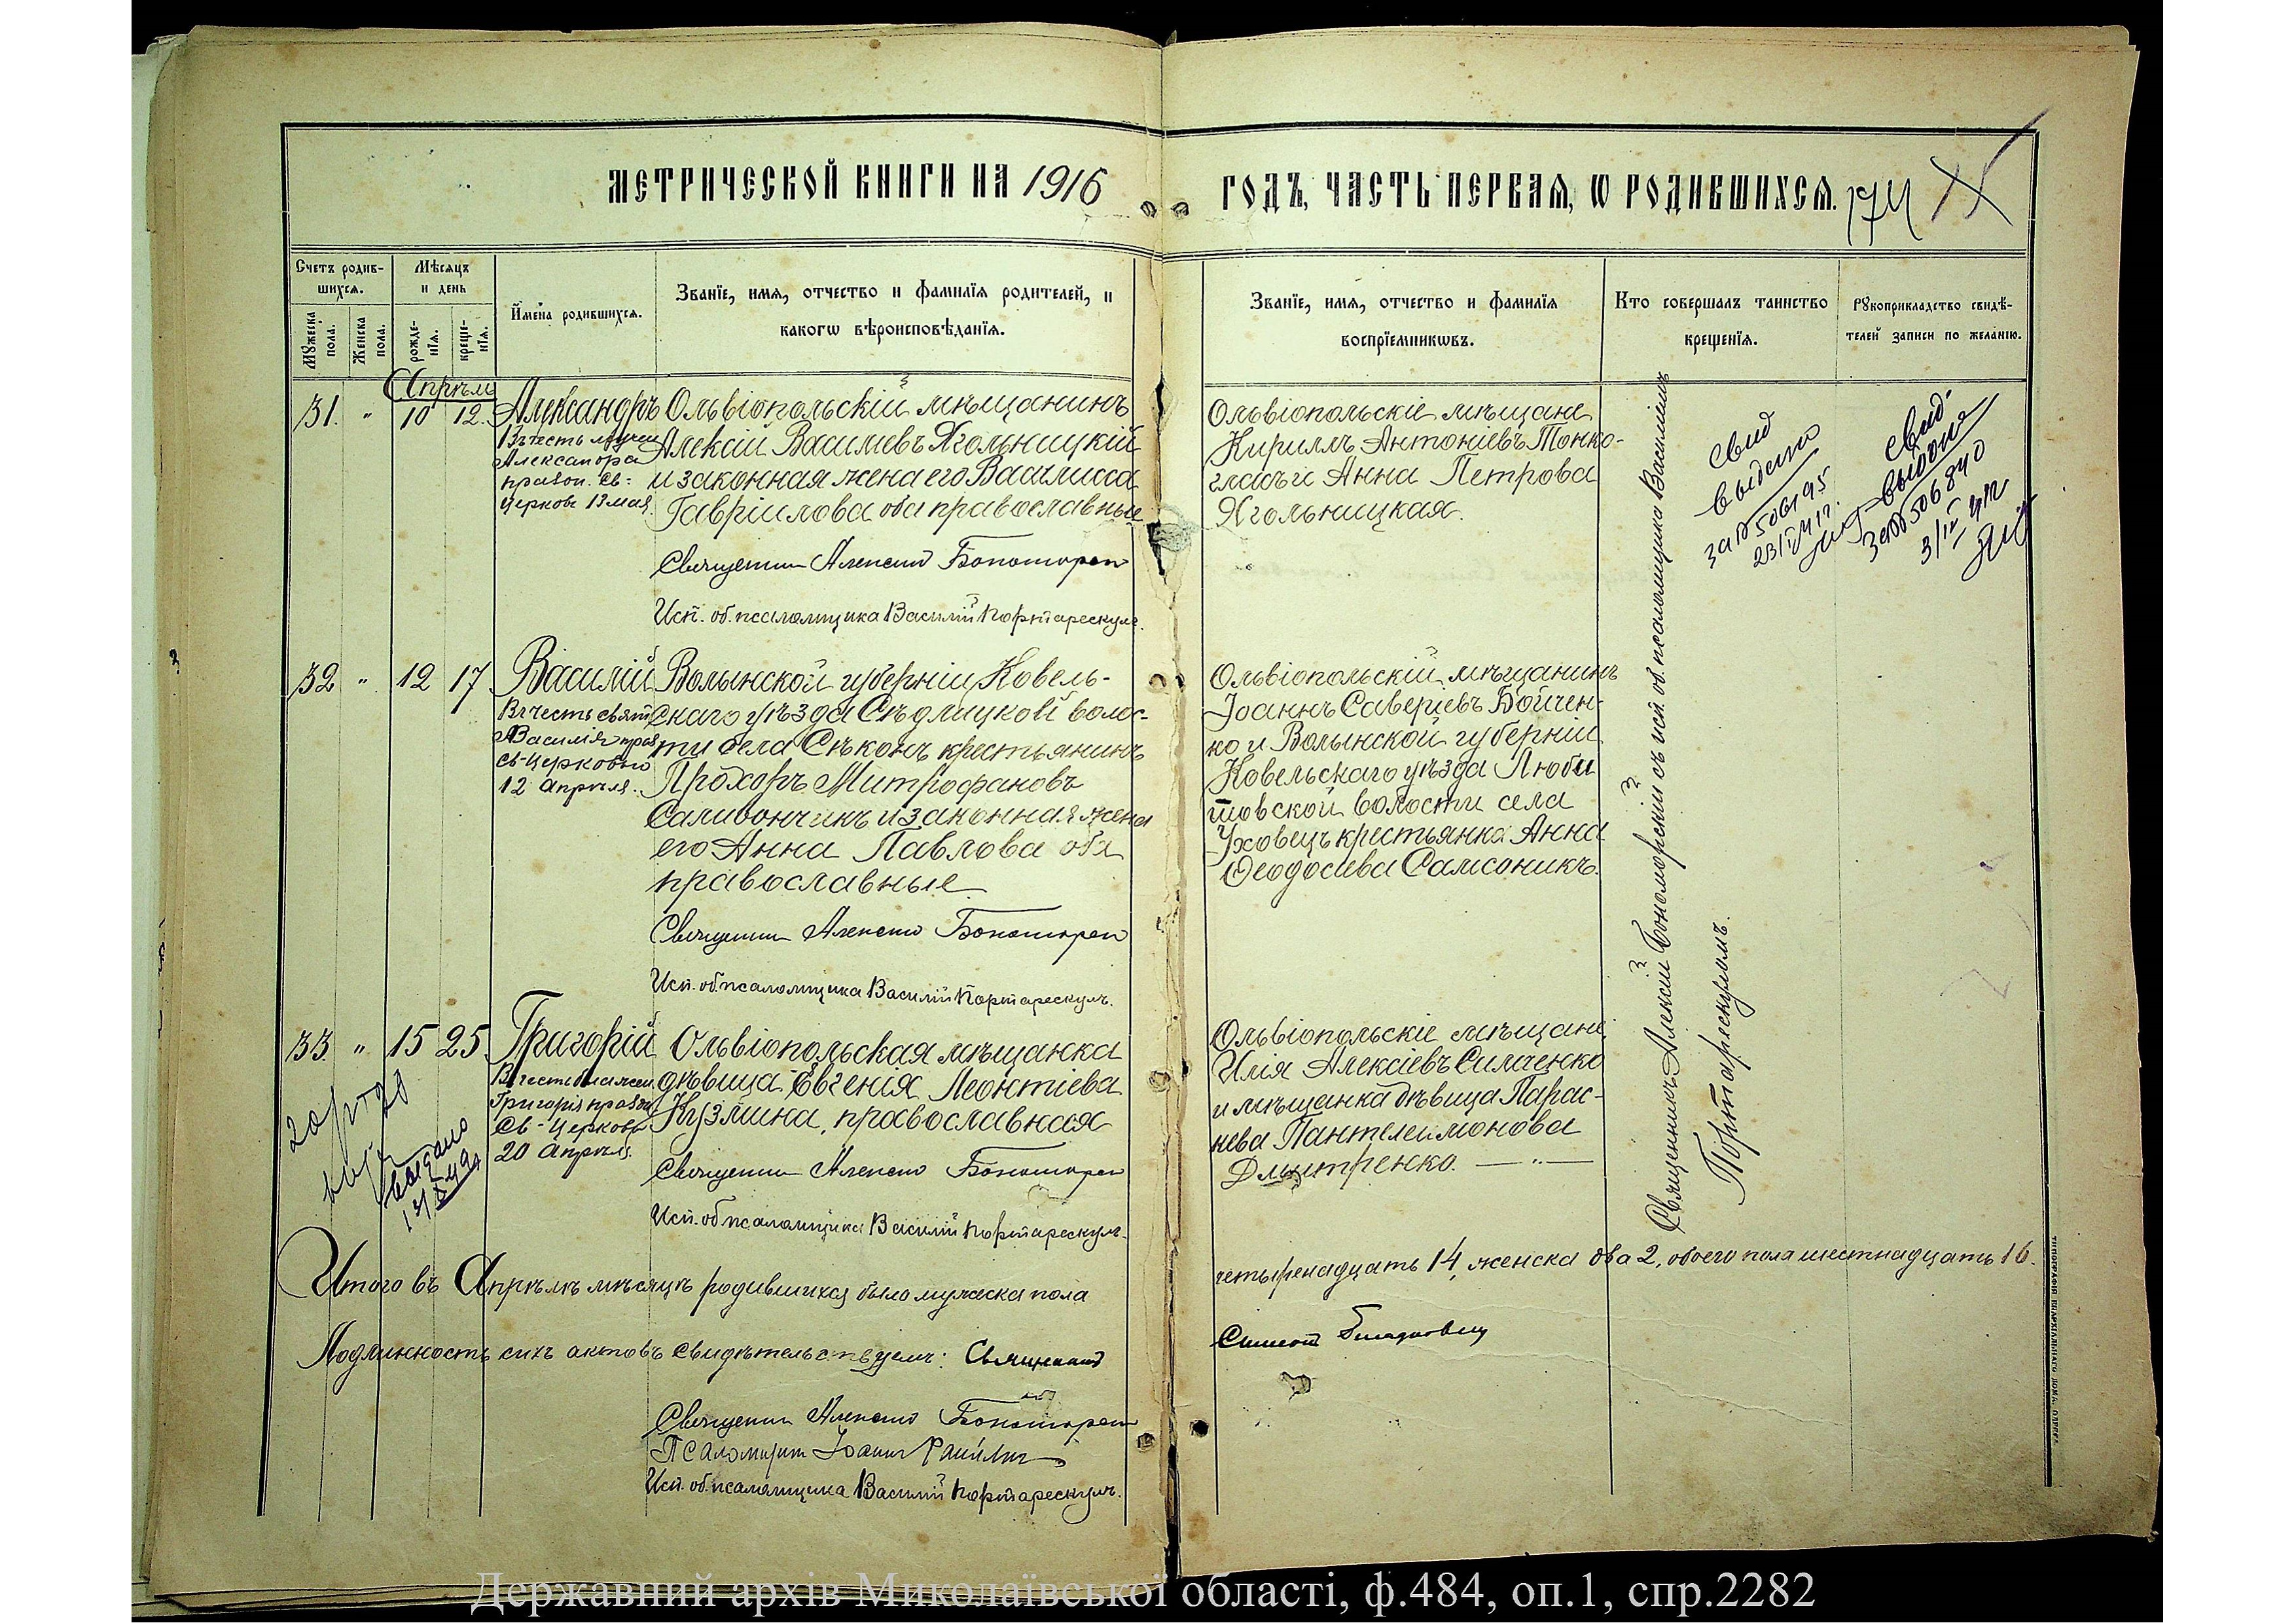 МЕТРИЧЕСКОЙ КНИГИ НА 1916
ГОДЪ, ЧАСТЬ ПЕРВАЯ, Ѡ РОДИВШИХСЯ. 174
Счетъ родив-
шихся.
Мужеска
пола.
Женска
пола.
Мѣсяцъ
и день
рожде-
нїя.
креще-
нїя.
Имена родившихся.
Званїе, имя, отчество и фамилїя родителей, и
какогѡ вѣроисповѣданїя.
Званїе, имя, отчество и фамилїя
воспрїемникѡвъ.
Кто совершалъ таинство
крещенїя.
Рукоприкладство свидѣ-
телей записи по желанію.
Апрѣль
31. " 10 12.
Александръ
Въ честь
Александра
правосл. св.
церковью 13 мая.
Ольвіопольскій мѣщанинъ
Алексій Василіевъ Ягольницкій
и законная жена его Василисса
Гавріилова оба православные
Священникъ Алексій Бономорскій
Исп. об. псаломщика Василій Портарескулъ.
Ольвіопольскіе мѣщане
Кириллъ Антоніевъ Тонко-
гласъ и Анна Петрова
Ягольницкая.
свид
выдано
за № 506195
свид.
выдано
за № 506840
32 " 12 17
Василій
Въ честь свят.
Василія прав.
св. церковью
12 Апрѣля.
Волынской губерніи, Ковель-
скаго уѣзда Сѣдлицкой волос-
ти села Сѣконъ крестьянинъ
Прохоръ Митрофановъ
Саливончикъ и законная жена
его Анна Павлова оба
православные
Священникъ Алексій Бономорскій
Исп. об. псаломщика Василій Портарескулъ.
Ольвіопольскій мѣщанинъ
Іоаннъ Саверіевъ Бойчен-
ко и Волынской губерніи
Ковельскаго уѣзда Люби
товской волости села
Уховецъ крестьянка Анна
Ѳеодосіева Самсоникъ.
33. " 15 25
Григорій
Въ честь блажен.
Григорія правосл.
св. церковью
20 Апрѣля.
выдано
Ольвіопольская мѣщанка
дѣвица Евгенія Леонтіева
Кузмина, православная
Священникъ Алексій Бономорскій
Исп. об. псаломщика Василій Портарескулъ.
Ольвіопольскіе мѣщане,
Илія Алексіевъ Симченко
и мѣщанка дѣвица Парас-
кева Пантелеимонова
Дмитренко. — " —
Священникъ Алексій Бономорскій съ исп. об. псаломщика Василіемъ
Портарескуломъ.
Итого въ Апрѣлѣ мѣсяцѣ родившихся было мужеска пола
четыренадцать 14, женска два 2, обоего пола шестнадцать 16.
Подлинность сихъ актовъ свидѣтельствуемъ: Священникъ
Священникъ Алексій Бономорскій
Псаломщикъ Іоаннъ
Исп. об. псаломщика Василій Портарескулъ.
ТИПОГРАФІЯ ЕПАРХІАЛЬНАГО ДОМА, ОДЕССА
Державний архів Миколаївської області, ф.484, оп.1, спр.2282